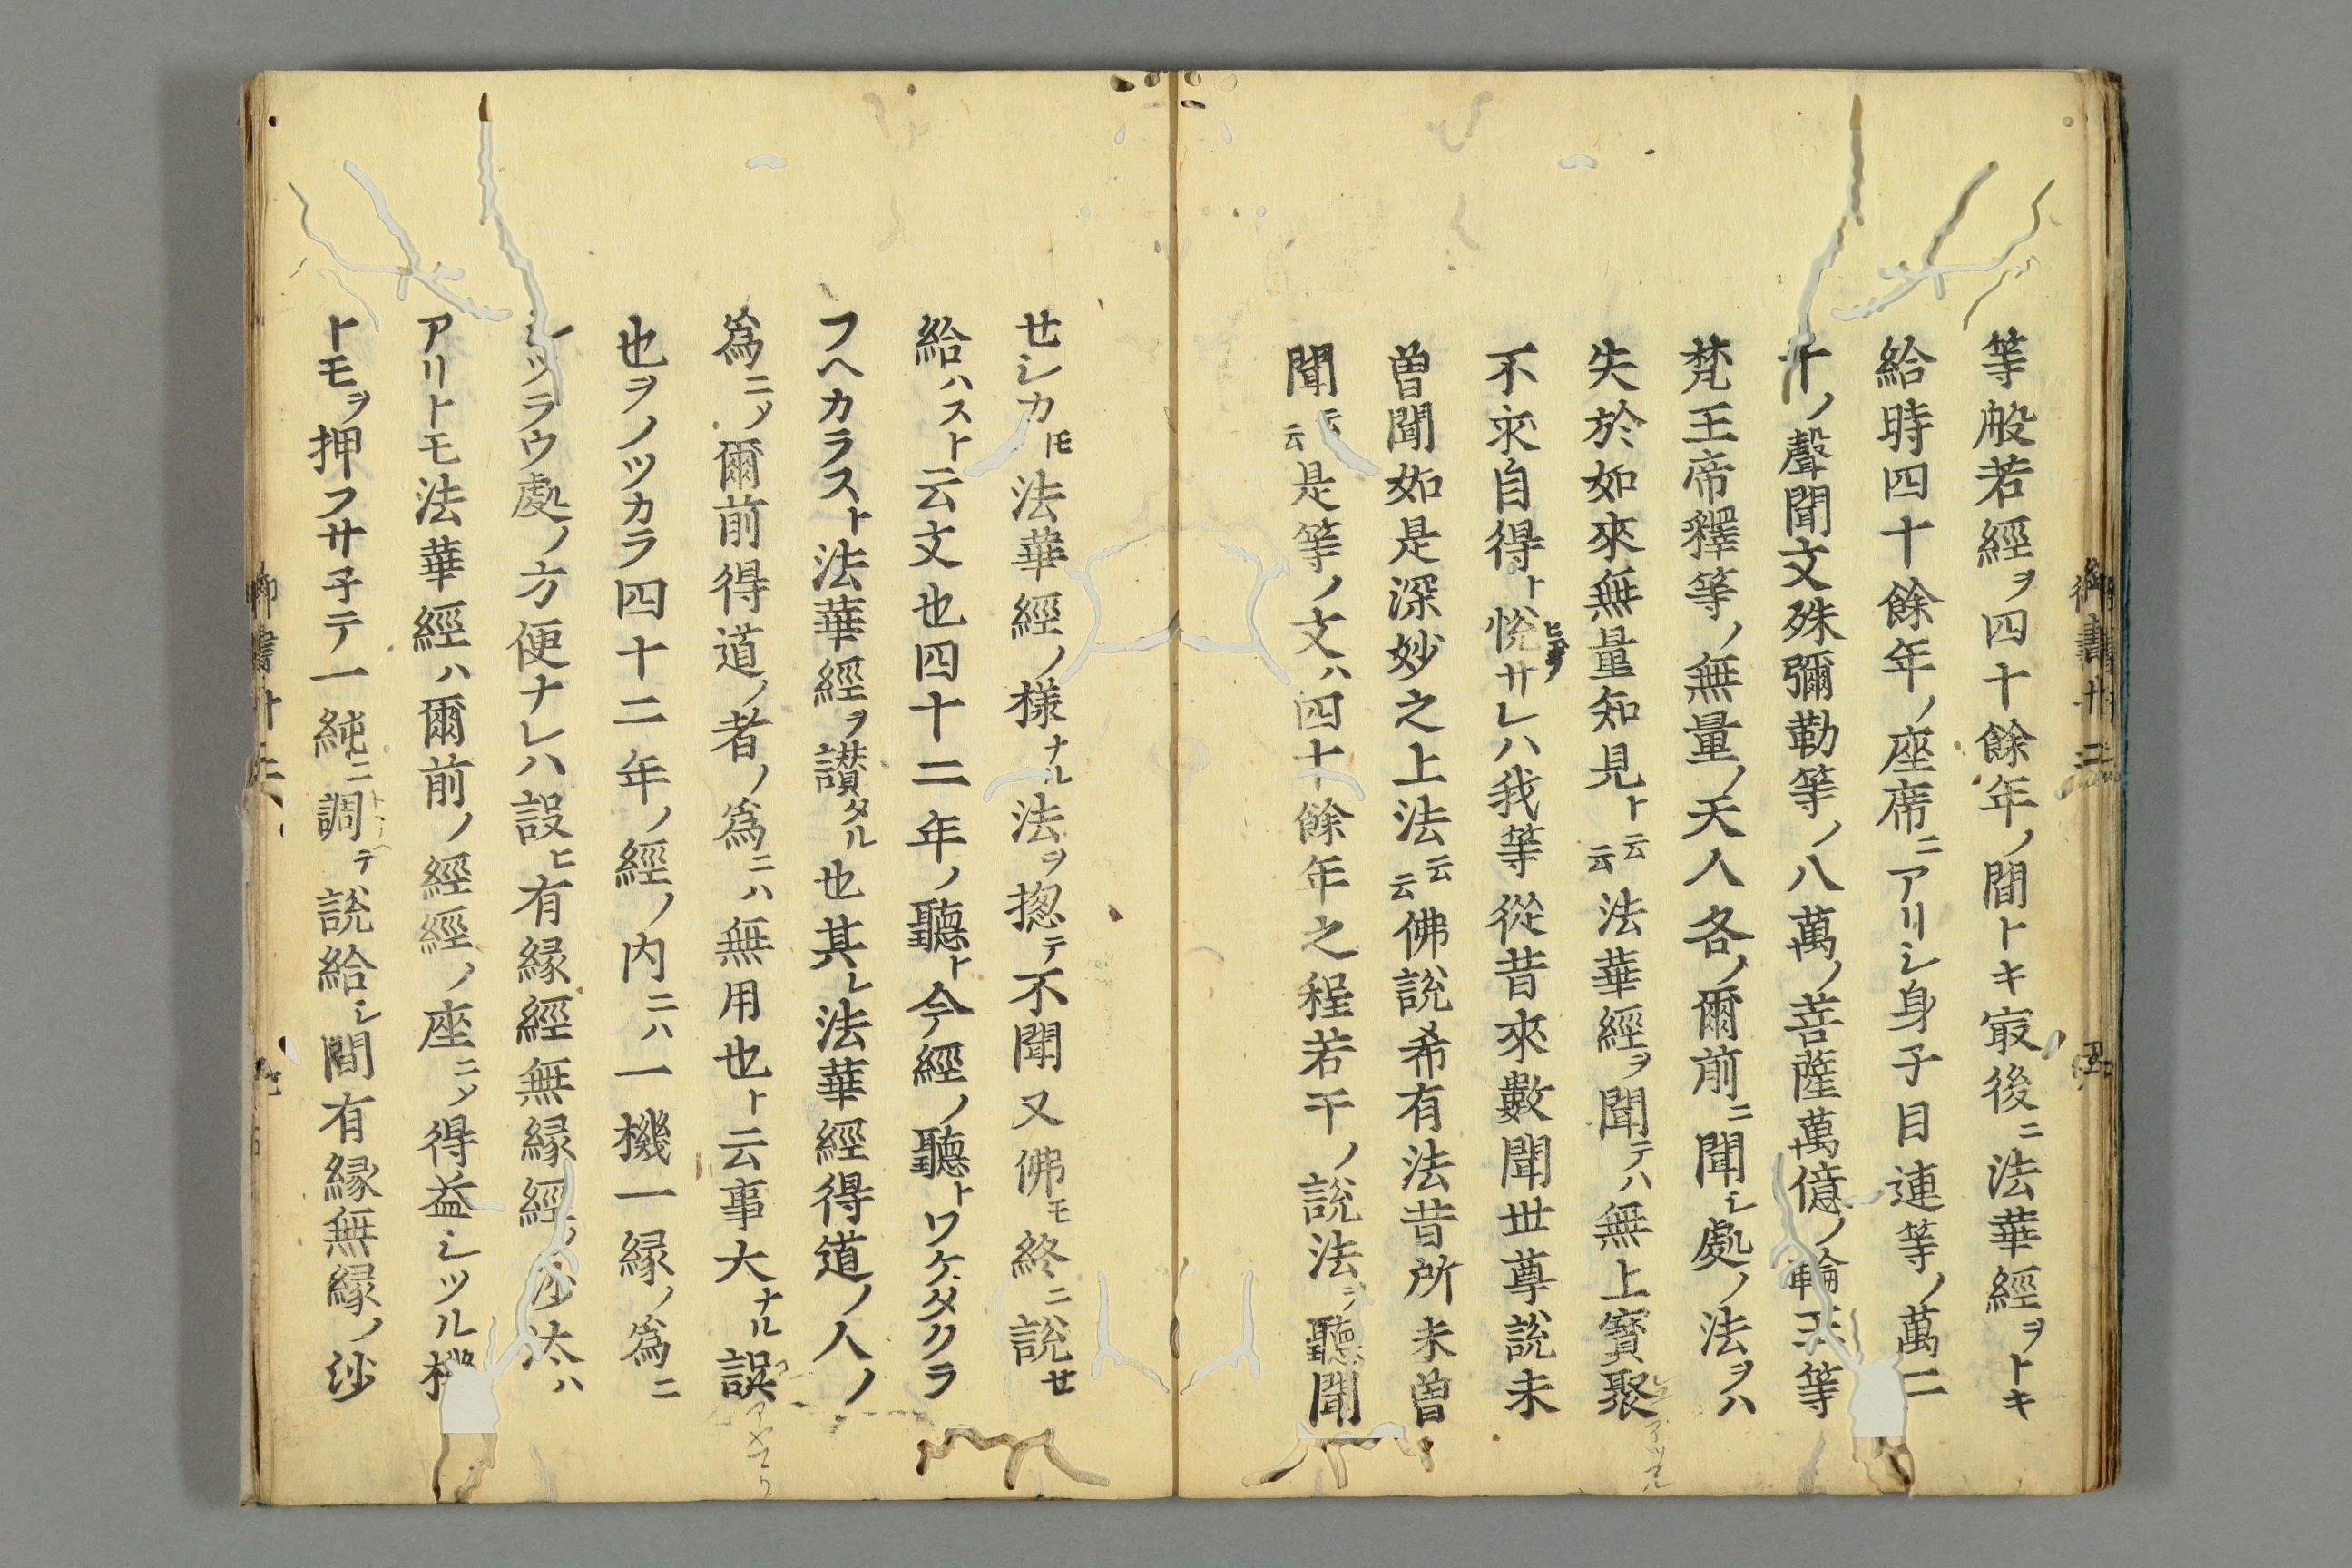 等般若經ヲ四十餘年ノ間トキ㝡後ニ法華經ヲトキ
給時四十餘年ノ座席ニアリシ身子目連等ノ萬二
千ノ聲聞文殊彌勒等ノ八萬ノ菩薩萬億ノ輪王等
梵王帝釋等ノ無量ノ天人各ノ爾前ニ聞シ處ノ法ヲハ
失於如來無量知見ト云云法華經ヲ聞テハ無上寶聚
不求自得ト悅サレハ我等從昔來數聞世尊說未
曾聞如是深妙之上法云云佛說希有法昔所未曾
聞云云是等ノ文ハ四十餘年之程若干ノ說法ヲ聽聞
御書廿三 五
せシカ𪜈法華經ノ樣ナル法ヲ捴テ不聞又佛モ終ニ說せ
給ハスト云文也四十二年ノ聽ト今經ノ聽トワケタクラ
フヘカラスト法華經ヲ讃タル也其レ法華經得道ノ人ノ
爲ニメ爾前得道ノ者ノ爲ニハ無用也ト云事大ナル誤
也ヲノツカラ四十二年ノ經ノ内ニハ一機一縁ノ爲ニ
シツラウ處ノ方便ナレハ設ヒ有縁經無縁經ノ沙汰ハ
アリトモ法華經ハ爾前ノ經經ノ座ニメ得益シツル機
トモヲ押フサ子テ一純ニ調テ說給シ間有縁無縁ノ沙